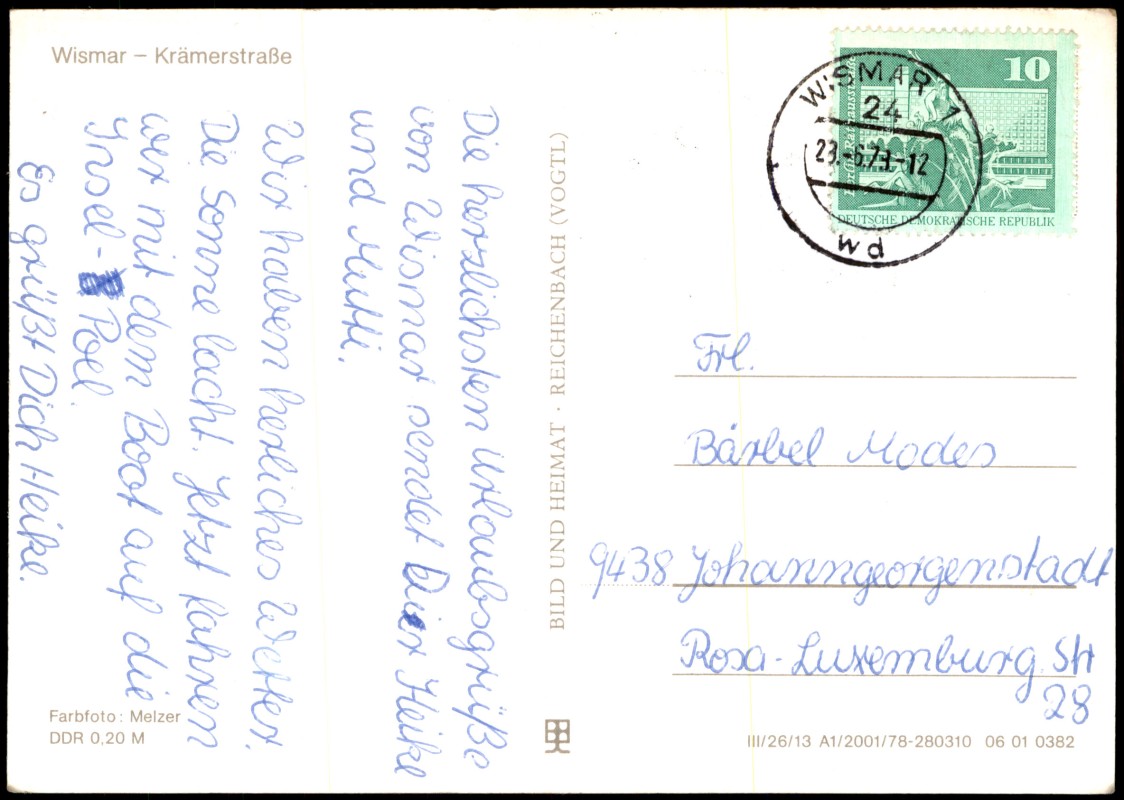 Wismar – Krämerstraße
Die herzlichsten Urlaubsgrüße
von Wismar sendet Dir Heike
und Mutti.
Wir haben herliches Wetter.
Die Sonne lacht. Jetzt fahren
wir mit dem Boot auf die
Insel - Poel.
Es grüßt Dich Heike.
Farbfoto: Melzer
DDR 0,20 M
BILD UND HEIMAT · REICHENBACH (VOGTL)
WISMAR 1
24
-12
wd
10
DEUTSCHE DEMOKRATISCHE REPUBLIK
Frl.
Bärbel Modes
9438 Johanngeorgenstadt
Rosa-Luxemburg. Str
28
III/26/13 A1/2001/78-280310 06 01 0382